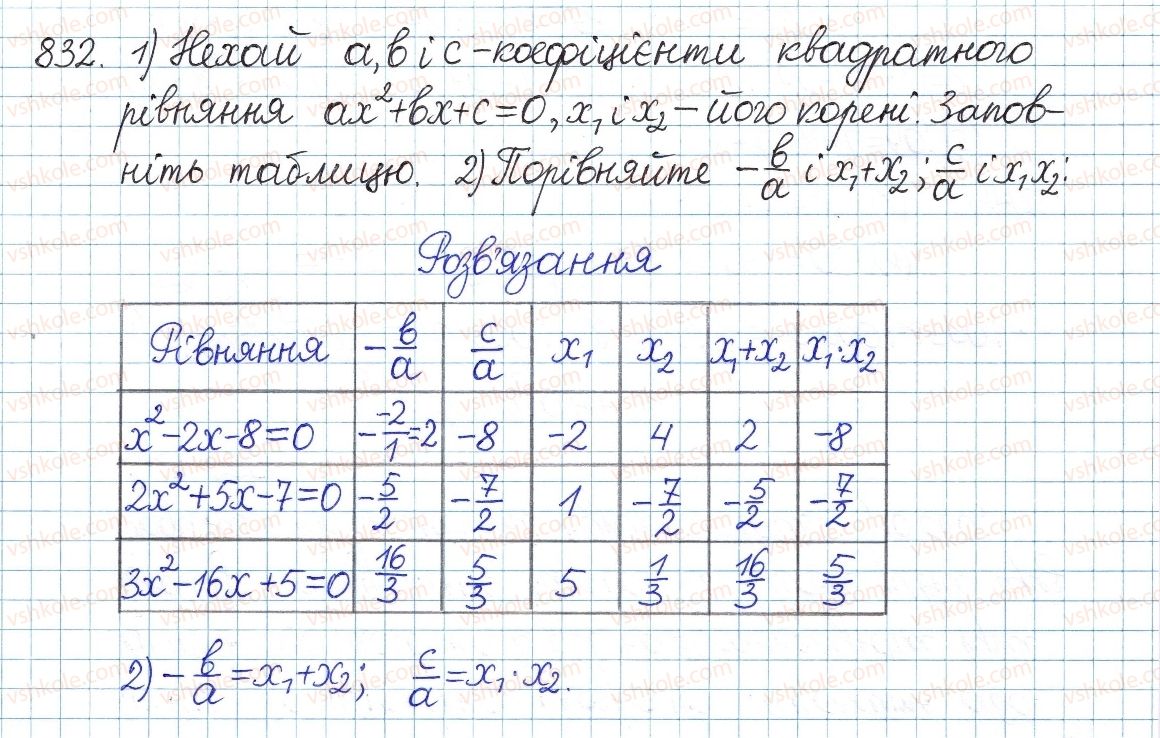 832. 1) Нехай a, b і c – коефіцієнти квадратного
рівняння ax²+bx+c=0, x₁ і x₂ – його корені. Запов-
ніть таблицю. 2) Порівняйте -b/a і x₁+x₂; c/a і x₁x₂:
Розв'язання
Рівняння -b/a c/a x₁ x₂ x₁+x₂ x₁·x₂
x²-2x-8=0 -(-2)/1=2 -8 -2 4 2 -8
2x²+5x-7=0 -5/2 -7/2 1 -7/2 -5/2 -7/2
3x²-16x+5=0 16/3 5/3 5 1/3 16/3 5/3
2) -b/a=x₁+x₂; c/a=x₁·x₂.
vshkole.com